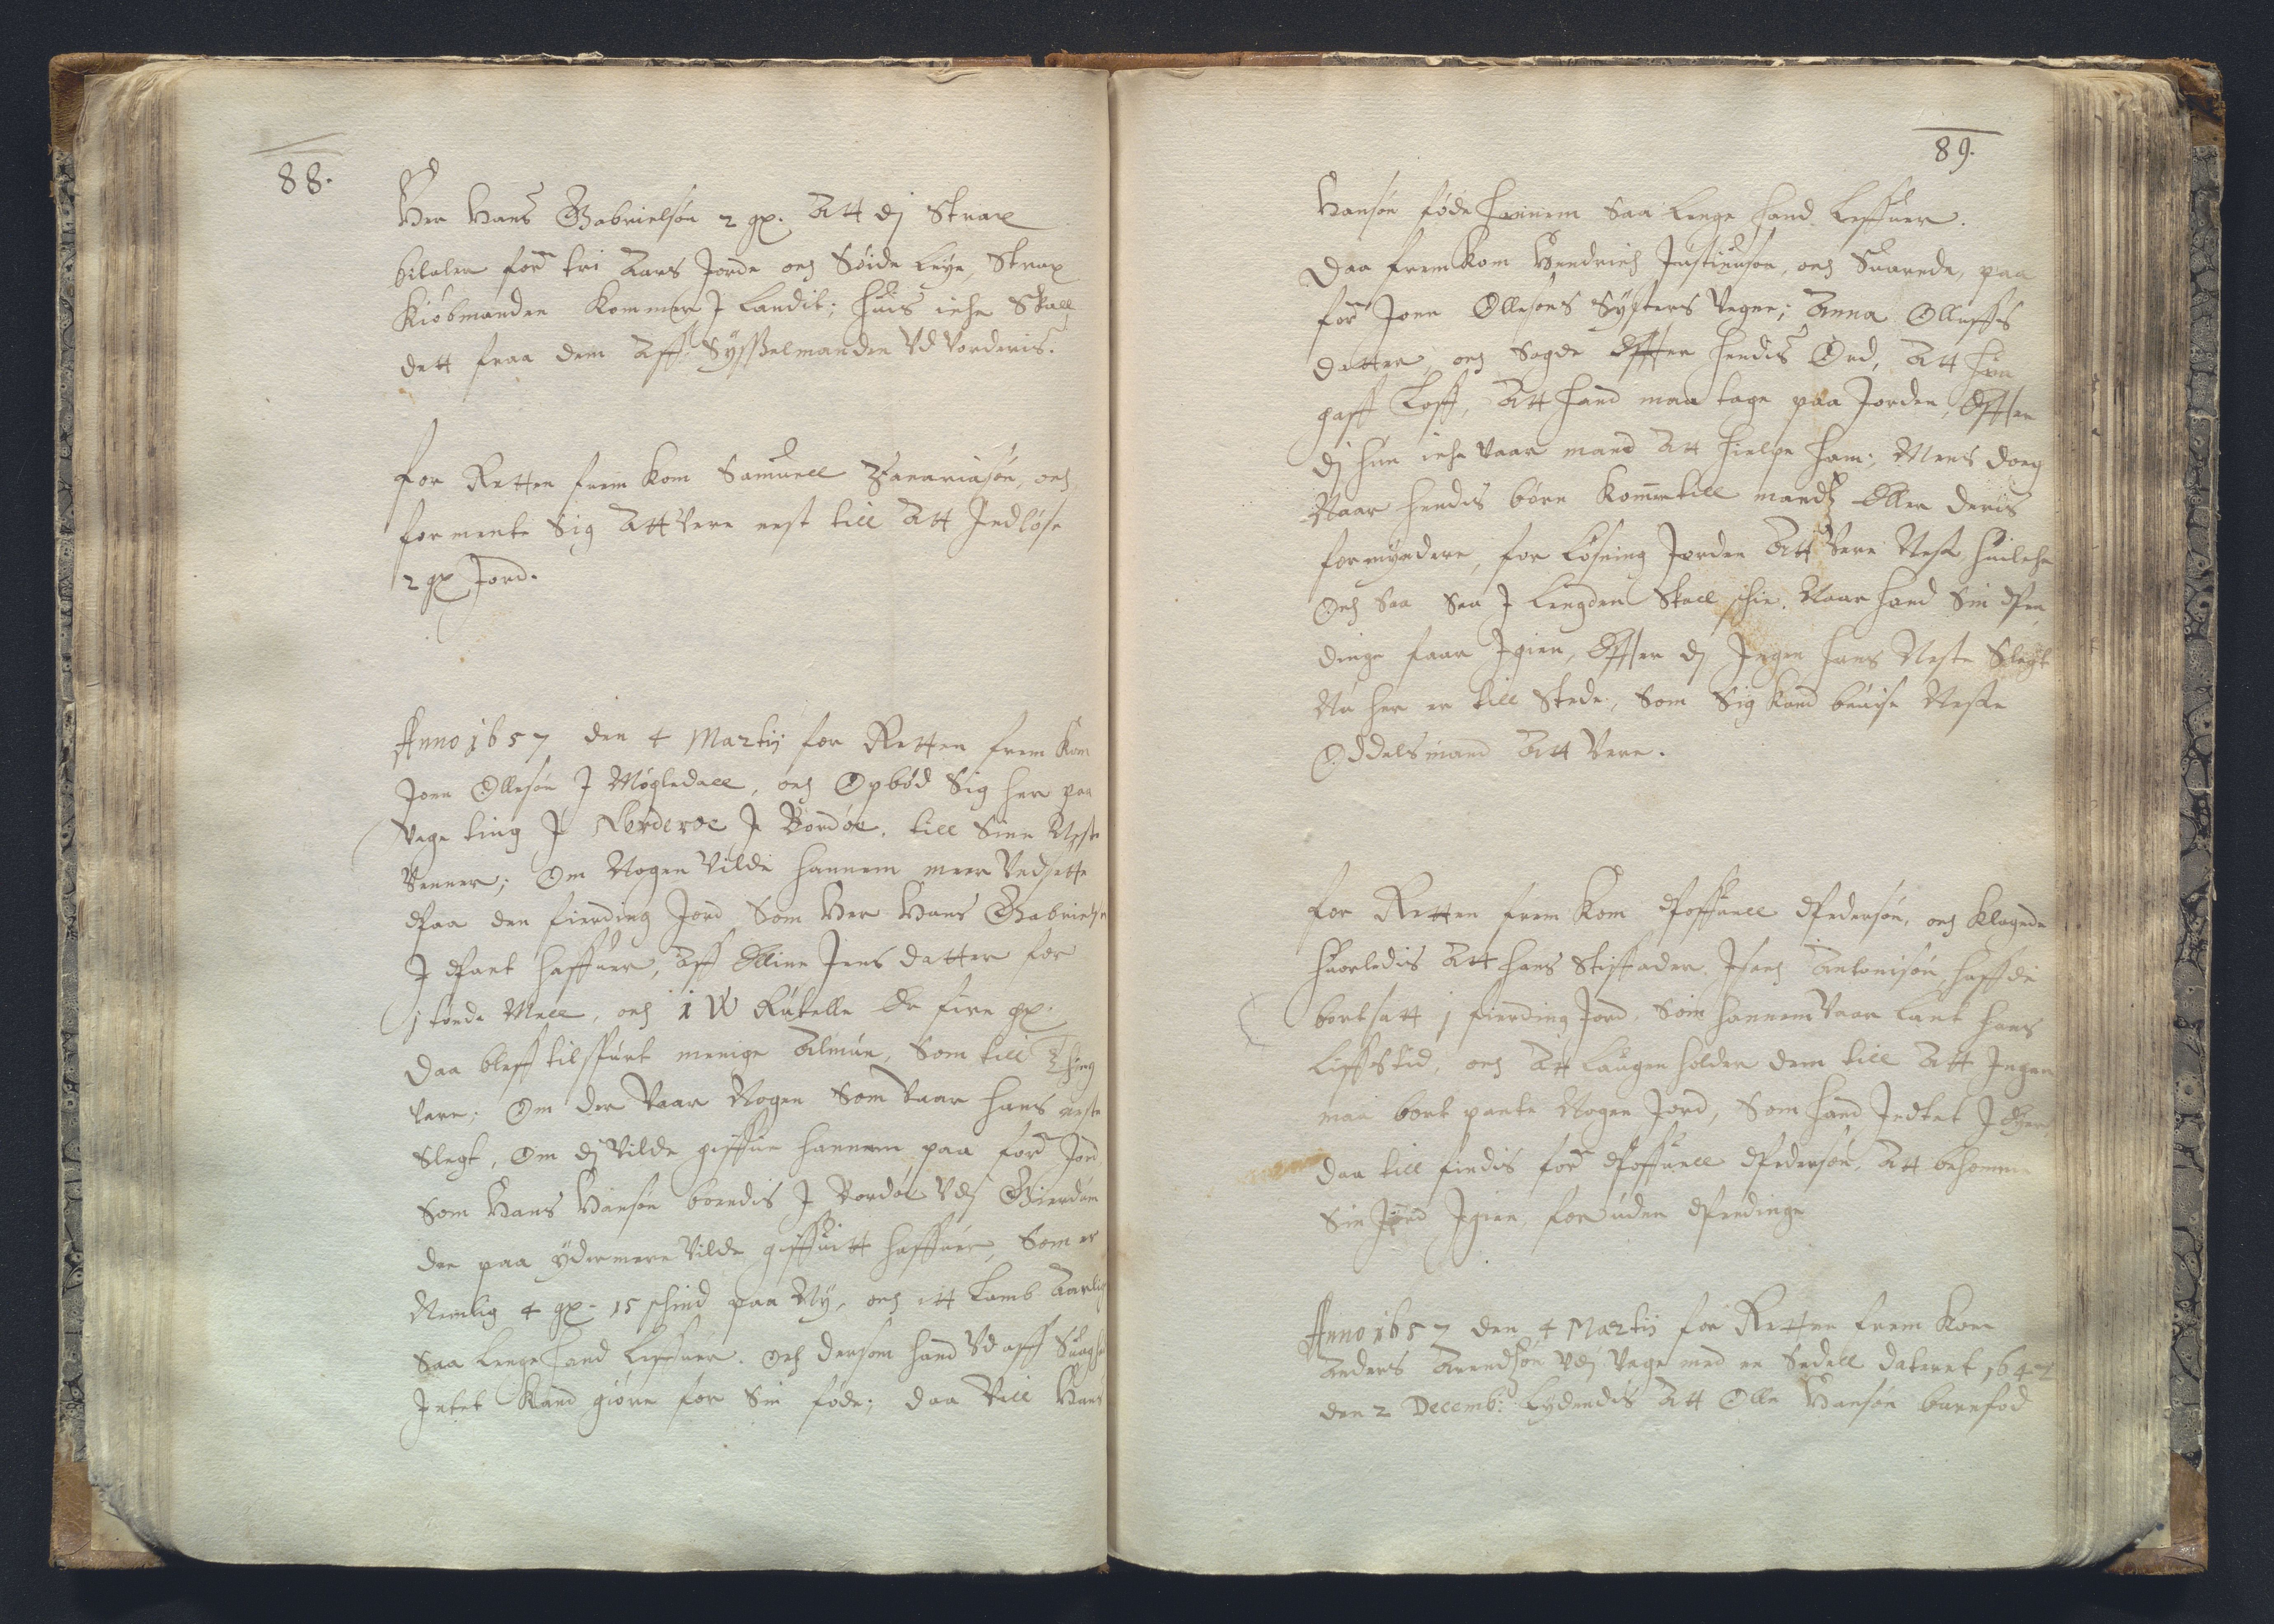 88.
Her Hans Gabrielsøn 2 gx. Att dj Strax
bitaler forᵉ tri Aars Jorde och Søide leye, Strax
Kiøbmanden kommer J Landit; huis iche Skall
dett fraa dem Aff Sysselmanden Vd Vorderis.
For Retten frem kom Samuell Zacariasøn, och
formente Sig Att Vere nest till Att Indløse
2 gx Jord.
Anno 1657 den 4 Martij for Retten frem kom
Joen Ollesøn J Mögledall, och Opbød Sig her paa
Vage ting J Norderøe J Bordøe, till Sine Neste
Venner; Om Nogen Vilde hannem meer Vedsette
Paa den fierding Jord Som Her Hans Gabrielsøn
J Pant haffuer, Aff Elline Jens datter for
j tønde Mell, och 1 W Ru̇telle Er fire gx.
Daa bleff tilspurt menige Almue, Som till Thing
vare; Om der Vaar Nogen Som Vaar hans neste
Slegt, Om dj Vilde giffue hannem paa forᵉ Jord
Som Hans Hansøn boendis J Bordøe Vdj Gierdum
der paa ydermere Vilde giffuitt haffuer, Som er
Nemlig 4 gx. 15 schind paa Ny, och itt Lamb Aarlig
Saa lenge hand Leffuer. Och dersom hand Vd aff Suaghed
Intet kand giøre for Sin føde; daa Vill Hans
89.
Hansøn føde hannem Saa lenge hand Leffuer.
Daa fremkom Hendrich Justinusøn, och Suarede, paa
forᵉ Joen Ollesøns Systers Vegne; Anna Olluffs
datter, och Sagde Effter hendis Ord, Att hun
gaff Loff, Att hand maa tage paa Jorden, Effter
dj hun iche Vaar mand Att hielpe ham; Mens doeg
Naar hendis børn kommer till mandz Eller deris
formyndere, for Løsning Jorden Att Vere Nest huilche
Och Saa Saa J Lengden Skall schie, Naar hand Sin Pen
dinge faar Igien, Effter dj Ingen hans Neste Slegt
Nu her er till Stede, Som Sig kand beuise Neste
Oddelsmand Att Vere.
For Retten frem kom Poffuell Pedersøn, och klagede
huorledis Att hans Stiffader Isach Antonisøn haffde
bortsatt j fierding Jord, Som hannem Vaar Lant hans
Liffstid, och Att Laugen holder dem till Att Ingen
maa bort pante Nogen Jord, Som hand Intet J Eyer,
daa till findis forᵉ Poffuell Pedersøn, Att bekomme
Sin Jord Igien, foruden Pendinge
Anno 1657 den 4 Martij for Retten frem kom
Anders Arendsøn Vdj Vage med en Sedell dateret 1642
den 2 Decemb: Lydendis Att Olle Hansøn barnefød